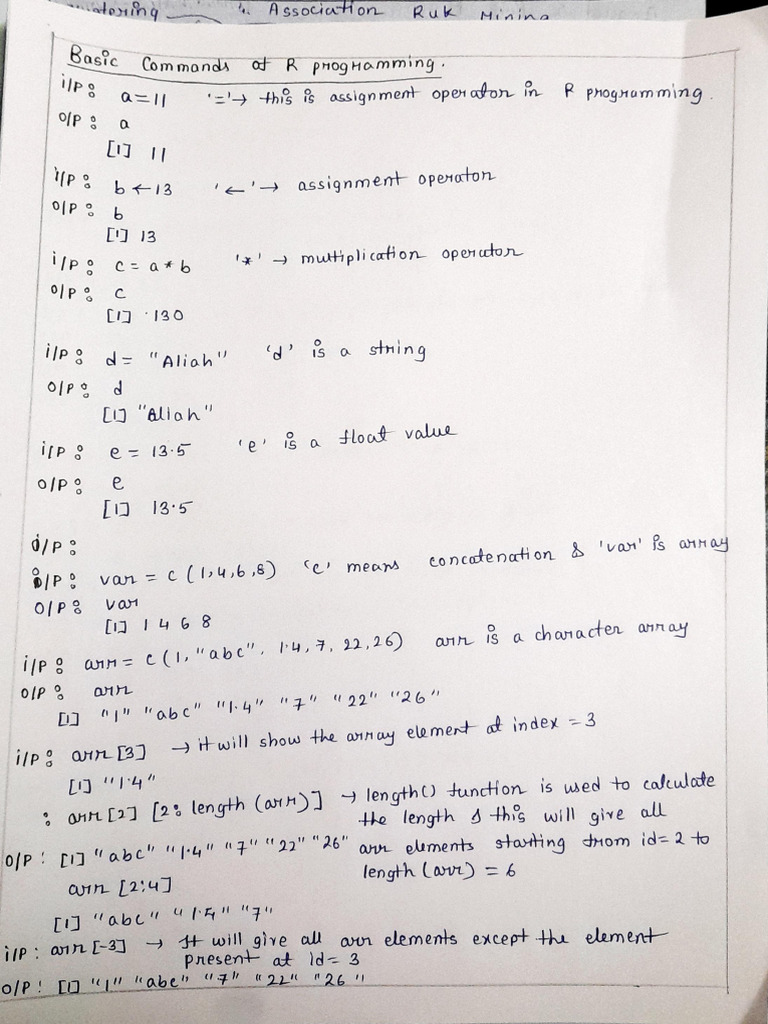 4. Association Rule Mining
Basic Commands of R programming.
i/P: a=11 '='→ this is assignment operator in R programming.
O/P: a
[1] 11
i/P: b ← 13 '←'→ assignment operator
O/P: b
[1] 13
i/P: c = a * b '*' → multiplication operator
O/P: c
[1] 130
i/P: d = "Aliah" 'd' is a string
O/P: d
[1] "Aliah"
i/P: e = 13.5 'e' is a float value
O/P: e
[1] 13.5
i/P:
i/P: var = c (1,4,6,8) 'c' means concatenation & 'var' is array
O/P: var
[1] 1 4 6 8
i/P: arr = c (1, "abc", 1.4, 7, 22, 26) arr is a character array
O/P: arr
[1] "1" "abc" "1.4" "7" "22" "26"
i/P: arr [3] → it will show the array element at index = 3
[1] "1.4"
: arr [2] [2: length (arr)] → length() function is used to calculate
the length & this will give all
O/P: [1] "abc" "1.4" "7" "22" "26" arr elements starting from id=2 to
arr [2:4] length (arr) = 6
[1] "abc" "1.4" "7"
i/P: arr [-3] → It will give all arr elements except the element
present at id= 3
O/P: [1] "1" "abc" "7" "22" "26"